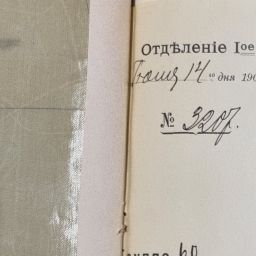 Отдѣленіе Iое
Іюля 14 го дня 190
№ 3207.
60